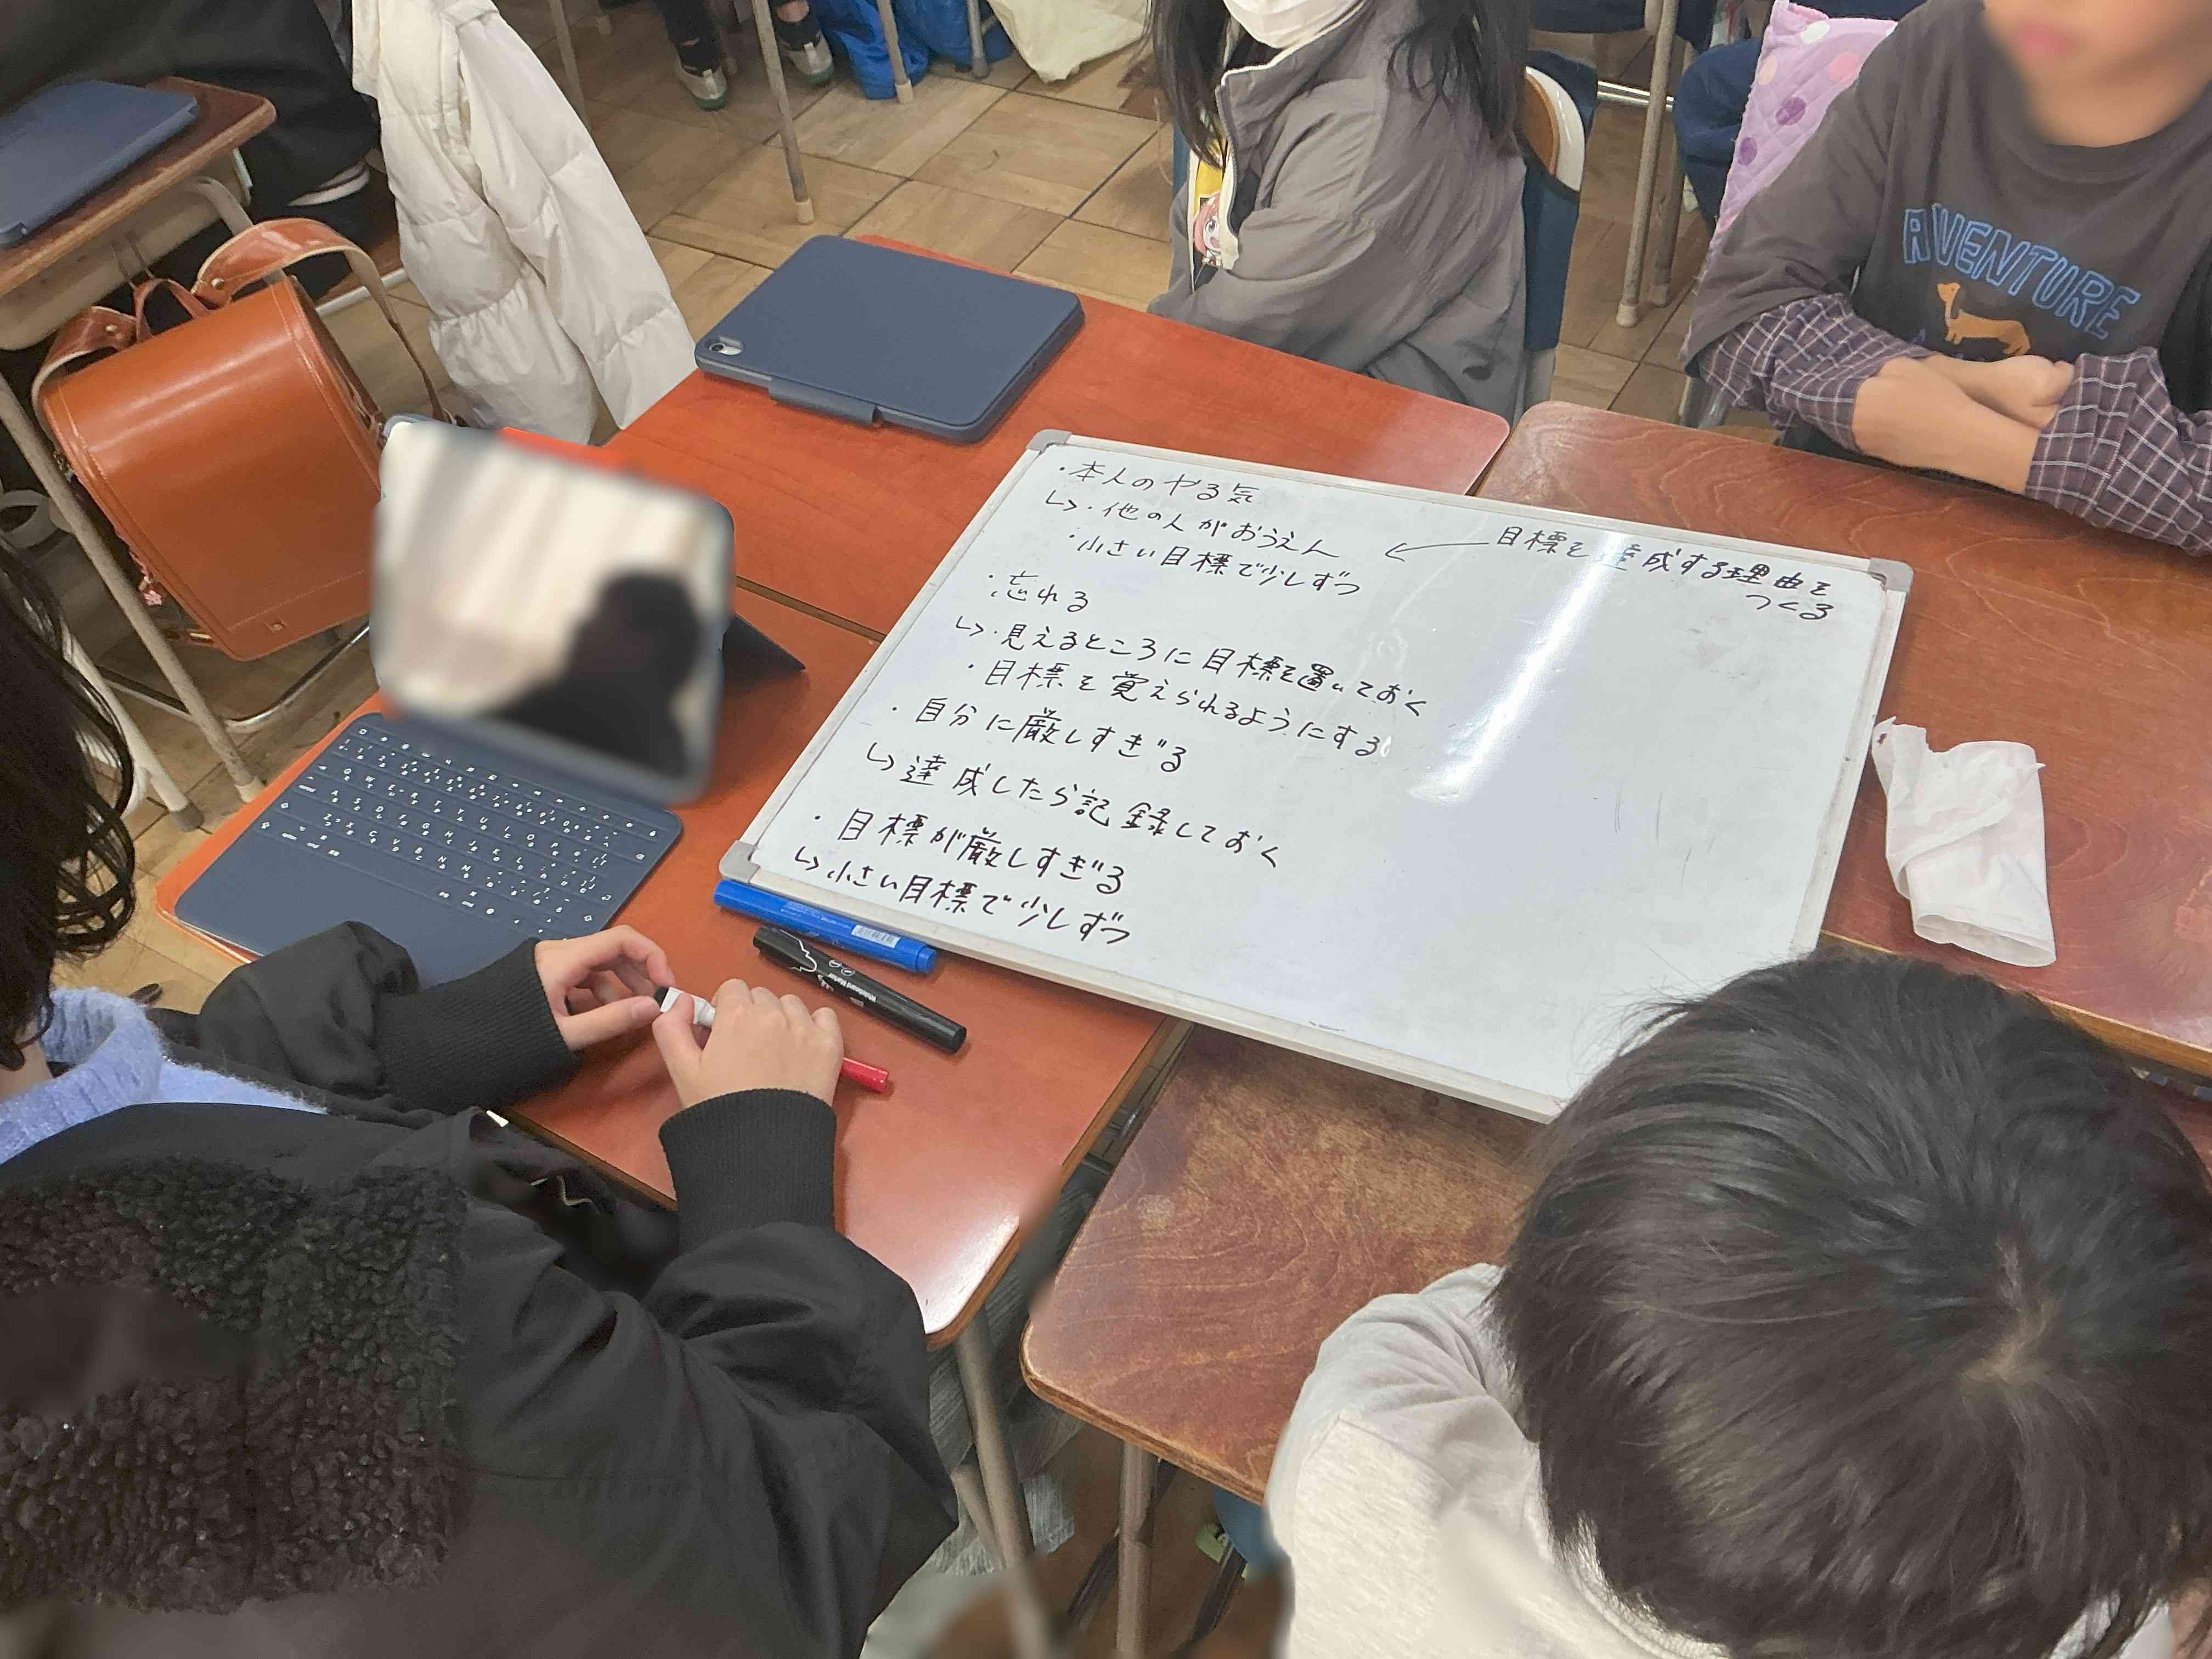 ・本人のやる気
↳・他の人がおうえん
・小さい目標で少しずつ
← 目標を達成する理由を
つくる
・忘れる
↳・見えるところに目標を置いておく
・目標を覚えられるようにする
・自分に厳しすぎる
↳達成したら記録しておく
・目標が厳しすぎる
↳小さい目標で少しずつ
Whiteboard Marker
ADVENTURE